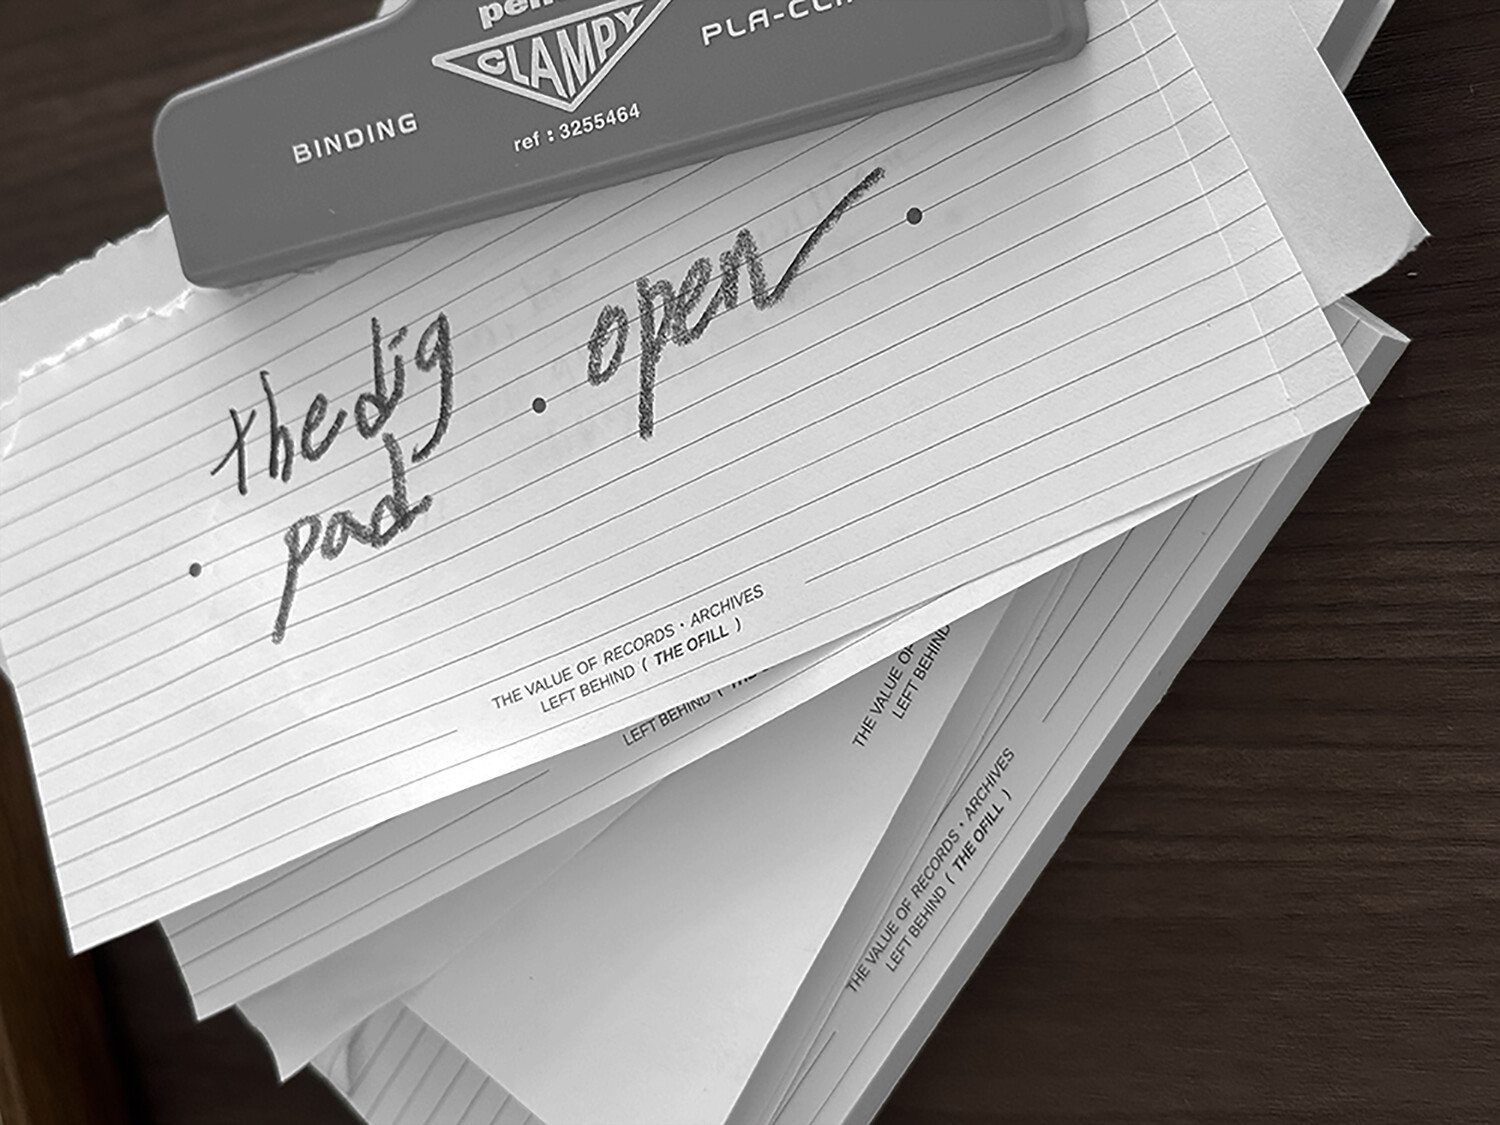 CLAMPY
BINDING
ref : 3255464
thedig
pad
open
THE VALUE OF RECORDS • ARCHIVES
LEFT BEHIND ( THE OFILL )
LEFT BEHIND (
THE VALUE
LEFT BEHIND
THE VALUE OF RECORDS • ARCHIVES
LEFT BEHIND ( THE OFILL )